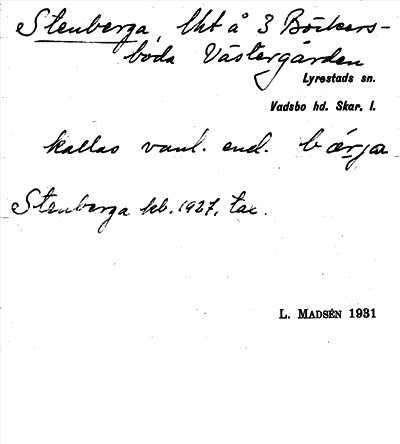 Stenberga, lht å 3 Böckers-
boda Västergården
Lyrestads sn.
Vadsbo hd. Skar. l.
kallas vanl. end. bärja
Stenberga kb. 1927, tax.
L. MADSÉN 1931